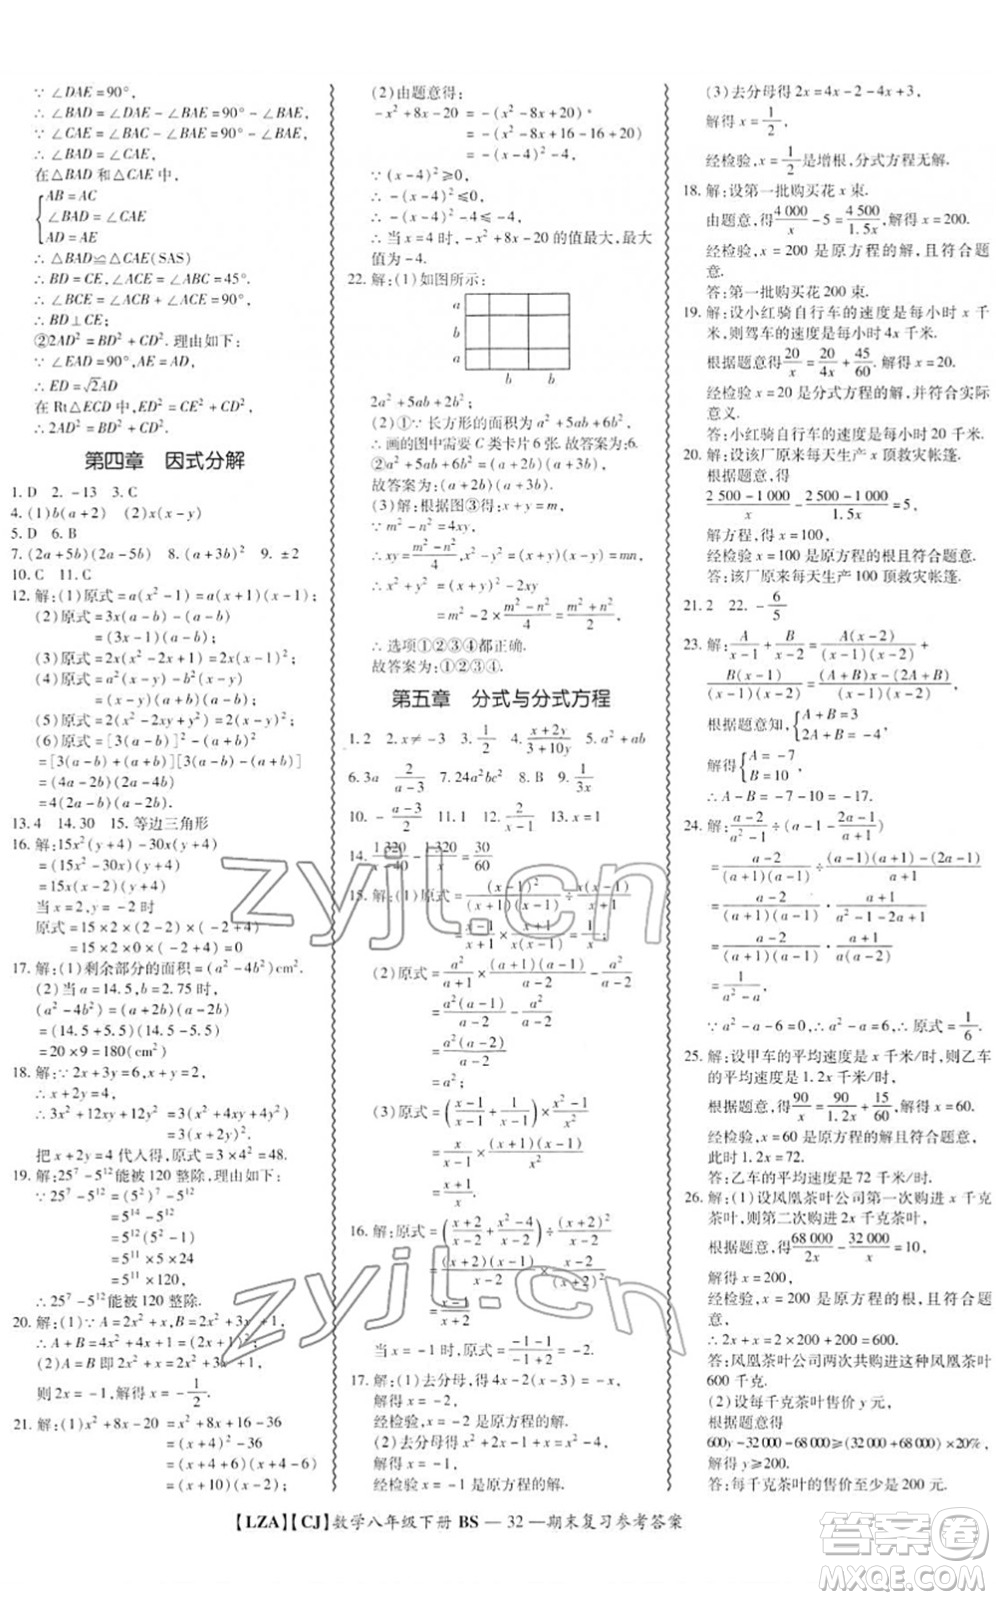 ∵ ∠DAE=90°,
∴ ∠BAD=∠DAE-∠BAE=90°-∠BAE.
∵ ∠CAE=∠BAC-∠BAE=90°-∠BAE,
∴ ∠BAD=∠CAE,
在△BAD 和△CAE 中,
AB=AC
∠BAD=∠CAE
AD=AE
∴ △BAD≌△CAE(SAS)
∴ BD=CE,∠ACE=∠ABC=45°.
∴ ∠BCE=∠ACB+∠ACE=90°,
∴ BD⊥CE;
②2AD²=BD²+CD². 理由如下:
∵ ∠EAD=90°,AE=AD,
∴ ED=√2AD
在 Rt△ECD 中,ED²=CE²+CD²,
∴ 2AD²=BD²+CD².
第四章 因式分解
1. D 2. -13 3. C
4. (1)b(a+2) (2)x(x-y)
5. D 6. B
7. (2a+5b)(2a-5b) 8. (a+3b)² 9. ±2
10. C 11. C
12. 解:(1)原式=a(x²-1)=a(x+1)(x-1);
(2)原式=3x(a-b)-(a-b)
=(3x-1)(a-b);
(3)原式=a(x²-2x+1)=a(x-1)²;
(6)原式=[3(a-b)]²-[2(a+b)]²
=[3(a-b)+2(a+b)][3(a-b)-2(a+b)]
13. 4 14. 30 15. 等边三角形
16. 解:15x²(y+4)-30x(y+4)
=(15x²-30x)(y+4)
=15x(x-2)(y+4)
当 x=2,y=-2 时
原式=15×2×(2-2)×(-2+4)
=15×2×0×(-2+4)=0
17. 解:(1)剩余部分的面积=(a²-4b²)cm².
(2)当 a=14.5,b=2.75 时,
(a²-4b²)=(a+2b)(a-2b)
=(14.5+5.5)(14.5-5.5)
=20×9=180(cm²)
18. 解:∵ 2x+4y-8=0,
∴ x+2y=4,
∴ 3x²+12xy+12y²=3(x²+4xy+4y²)
=3(x+2y)²,
把 x+2y=4 代入,原式=3×4²=48.
19. 解:25⁷-5¹²能被 120 整除. 理由如下:
∵ 25⁷-5¹²=(5²)⁷-5¹²
=5¹⁴-5¹²
=5¹²(5²-1)
=5¹¹×5×24
=5¹¹×120,
∴ 25⁷-5¹²能被 120 整除.
20. 解:(1)∵ A=2x²+x,
(2)
则 2x=-1,解得 x=-1/2.
21. 解:(1)x²+8x-20=x²+8x+16-36
=(x+4)²-36
=(x+4+6)(x+4-6)
=(x+10)(x-2)
(2)由题意得:
-x²+8x-20=-(x²-8x+20)
=-(x²-8x+16-16+20)
=-(x-4)²-4
∵ (x-4)²≥0,
∴ -(x-4)²≤0.
∴ 当 x=4 时,-x²+8x-20 的值最大,最大
值为-4.
22. 解:(1)如图所示:
a
a
b b
2a²+5ab+2b²;
(2)①∵ 长方形的面积为 a²+5ab+6b²,
∴ 画的图中需要 C 类卡片 6 张. 故答案为:6.
故答案为:(a+2b)(a+3b).
(3)解:根据图③得:x+y=m,
∵ m²-n²=4xy,
∴ xy=(m²-n²)/4,
∴ x²-y²=(x+y)(x-y)=mn,
=m²-2×(m²-n²)/4=(m²+n²)/2,
∴ 选项①②③④都正确.
故答案为:①②③④.
第五章 分式与分式方程
1. 2 2. x≠-3 3. 1/2 4. x/(3+10y) 5. a²+ab
6. 3a 2/(a-3) 7. 24a²bc² 8. B 9. 1/(3x)
10. -(a-3)/2 11. 1 12. 2/(x-3) 13. x=1
14. 1320/(x-40)-1320/x=30/60
15. 解:(1)原式=
(2)原式=a²/(a+1)×(a+1)(a-1)/(a-2)-a²/(a-2)
=a²(a-1)/(a-2)-a²/(a-2)
=a²(a-2)/(a-2)
=a²;
(3)原式=((x-1)/(x+1)+1/(x-1))×(x²-1)/(x²+1)
16. 解:原式=((x+2)/(x-2)+(x²-4)/(x-2))÷(x+2)²/(x-2)
当 x=-1 时,原式=
17. 解:(1)去分母,得
解得 x=-2,
经检验,x=-2 是原方程的解.
(2)去分母得
解得 x=-1,
经检验 x=-1 是原方程的解.
(3)去分母得 2x=4x-2-4x+3,
解得 x=1/2,
经检验,x=1/2 是增根,分式方程无解.
18. 解:设第一批购买花 x 束.
由题意,得4 000/x-5=4 500/1.5x,解得 x=200.
经检验,x=200 是原方程的解,且符合题
意.
答:第一批购买花 200 束.
19. 解:设小红骑自行车的速度是每小时 x 千
米,则驾车的速度是每小时 4x 千米.
根据题意得20/x=20/4x+45/60. 解得 x=20.
经检验,x=20 是分式方程的解,并符合实际
意义.
答:小红骑自行车的速度是每小时 20 千米.
20. 解:设该厂原来每天生产 x 顶救灾帐篷.
根据题意,得
(2 500-1 000)/x-(2 500-1 000)/1.5x=5,
解方程,得 x=100,
经检验 x=100 是原方程的根且符合题意.
答:该厂原来每天生产 100 顶救灾帐篷.
21. 2 22. -6/5
23. 解:A/(x-1)+B/(x-2)=A(x-2)/(x-1)(x-2)+
B(x-1)/(x-1)(x-2)=((A+B)x-(2A+B))/(x-1)(x-2),
根据题意知,A+B=3
2A+B=-4
解得A=-7
B=10
∴ A-B=-7-10=-17.
24. 解:(a-2)/(a²-1)÷(a-1-(2a-1)/(a+1))
=(a-2)/(a+1)(a-1)÷((a-1)(a+1)-(2a-1))/(a+1)
=(a-2)/(a+1)(a-1)·(a+1)/(a²-1-2a+1)
=(a-2)/(a+1)(a-1)·(a+1)/a(a-2)
=1/(a²-a),
∵ a²-a-6=0,∴ a²-a=6,∴ 原式=1/6.
25. 解:设甲车的平均速度是 x 千米/时,则乙车
的平均速度是 1.2x 千米/时,
根据题意,得90/x=90/1.2x+15/60,解得 x=60.
经检验,x=60 是原方程的解且符合题意,
此时 1.2x=72.
答:乙车的平均速度是 72 千米/时.
26. 解:(1)设凤凰茶叶公司第一次购进 x 千克
茶叶,则第二次购进 2x 千克茶叶,
根据题意,得68 000/2x-32 000/x=10,
解得 x=200,
经检验,x=200 是原方程的根,且符合题意,
∴ 2x+x=2×200+200=600,
答:凤凰茶叶公司两次共购进这种凤凰茶叶
600 千克.
(2)设每千克茶叶售价 y 元,
根据题意得
600y-32 000-68 000≥(32 000+68 000)×20%,
解得 y≥200.
答:每千克茶叶的售价至少是 200 元.
【LZA】【CJ】数学八年级下册 BS — 32 —期末复习参考答案
zyjl.cn
zyjl.cn
作业帮
MXQE.COM